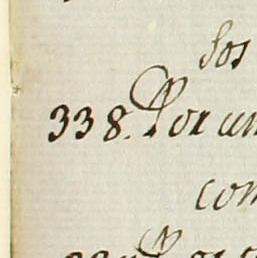 Sos
338. Por un
com